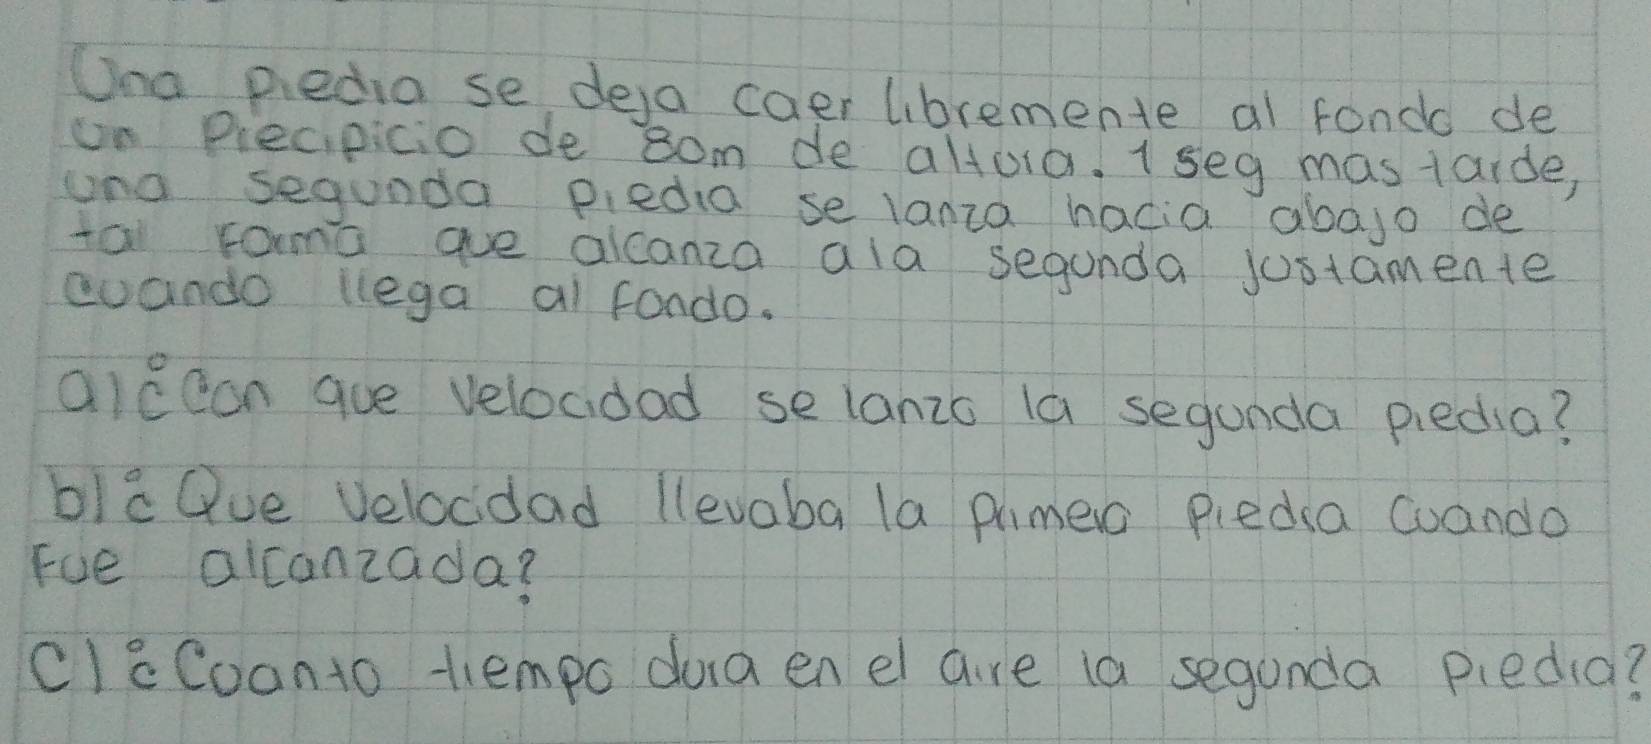 Una piedra se deja caer libremente al fondo de
un Precipicio de 80m de altura. 1 seg mas tarde,
una segunda piedra se lanza hacia abajo de
tal forma que alcanza ala segunda justamente
cuando llega al fondo.
a)¿Con que velocidad se lanzo la segunda piedra?
b)¿Que velocidad llevaba la primera piedra cuando
fue alcanzada?
C)¿Cuanto tiempo dura en el aire la segunda piedra?